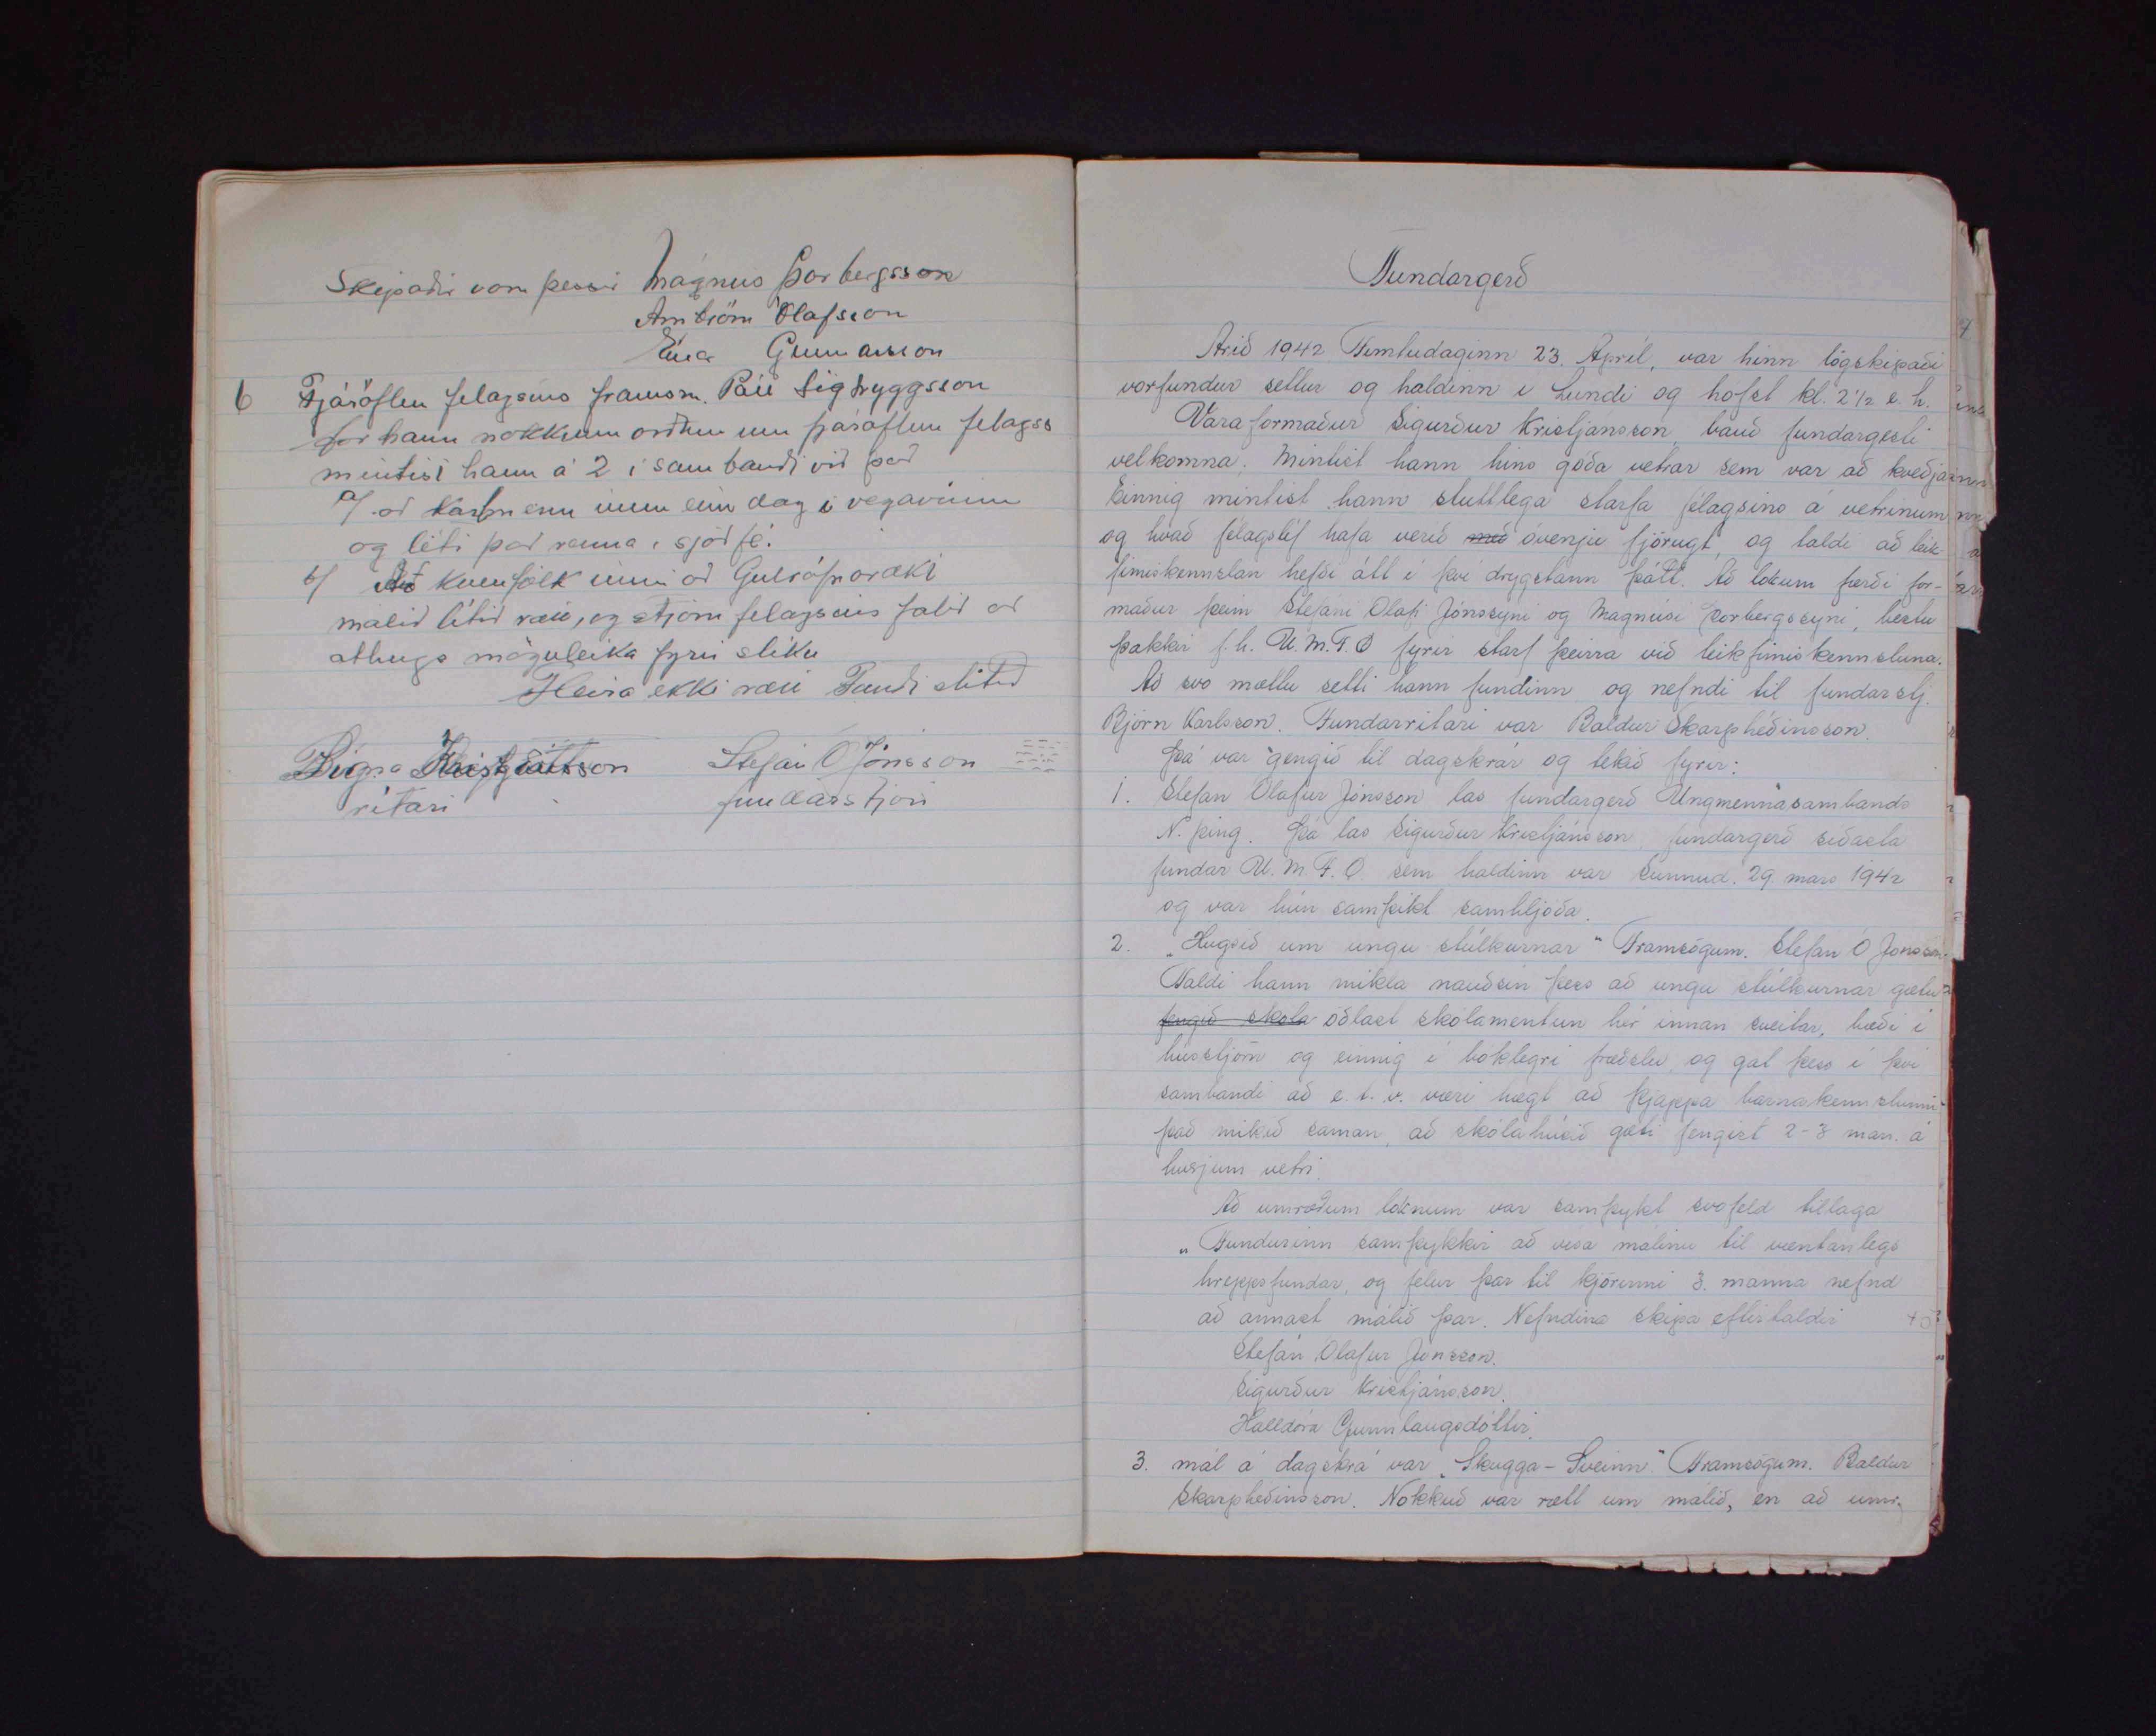 Skipaðir voru þessir Magnús Þorbergsson
Arnbjörn Ólafsson
Einar Gunnarsson
6 Fjáröflun félagsins framsm. Páll Sigtryggsson
fór hann nokkrum orðum um fjáröflun félagss
mintist hann á 2 í sambandi við það
a/ að karlmenn innu einn dag í vegavinnu
og léti það renna í sjóð fé.
b/ Að kvenfólk inni að Gulrófnarækt
málið lítið rætt, og stjórn félagsins falið að
athuga möguleika fyrir slíku
Fleira ekki rætt Fundi slitið
ritari
Stefán Ó Jónsson
fundarstjóri
Fundargerð
Árið 1942 Fimtudaginn 23. Apríl, var hinn lögskipaði
vorfundur settur og haldinn í Lundi og hofst kl. 2 1/2 e. h.
Varaformaður Sigurður Kristjánsson, bauð fundargesti
velkomna. Mintist hann hins góða vetrar sem var að kveðja
Einnig mintist hann stuttlega starfa félagsins á vetrinum
og hvað félagslíf hafa verið með óvenju fjörugt, og taldi að leik-
fimiskennslan hefði átt í því drygstann þátt. Að lokum færði for-
maður þeim Stefáni Ólafi Jónssyni og Magnúsi Þorbergssyni, bestu
þakkir f.h. U.M.F.Ö fyrir starf þeirra við leikfimiskennsluna.
Að svo mæltu setti hann fundinn og nefndi til fundarstj.
Björn Karlsson. Fundarritari var Baldur Skarphéðinsson.
Þá var gengið til dagskrár og tekið fyrir:
1. Stefán Ólafur Jónsson las fundargerð Ungmennasambands
N. þing. Þá las Sigurður Kristjánsson, fundargerð síðasta
fundar U.M.F.Ö. sem haldinn var Sunnud. 29. mars 1942
og var hún samþikt samhljóða.
2. „Hugsið um ungu stúlkurnar“ Framsögum. Stefán Ó Jónsson.
Taldi hann mikla nauðsin þess að ungu stúlkurnar gætu
fengið skóla öðlast skolamentun hér innan sveitar, bæði í
hússtjórn og einnig í boklegri fræðslu, og gat þess í því
sambandi að e. t. v. væri hægt að þjappa barnakennslunni
það mikið saman, að skólahúsið gæti fengist 2-3 mán. á
hverjum vetri.
Að umræðum loknum var samþykt svofeld tillaga
„Fundurinn samþykkir að vísa málinu til væntanlegs
hreppsfundar, og felur þar til kjörinni 3. manna nefnd
að annast málið þar. Nefndina skipa eftirtaldir
Stefán Ólafur Jónsson.
Sigurður Kristjánsson.
Halldóra Gunnlaugsdóttir.
3. mál á dagskrá var „Skugga-Sveinn.“ Framsögum. Baldur
Skarphéðinsson. Nokkuð var rætt um málið, en að umr.